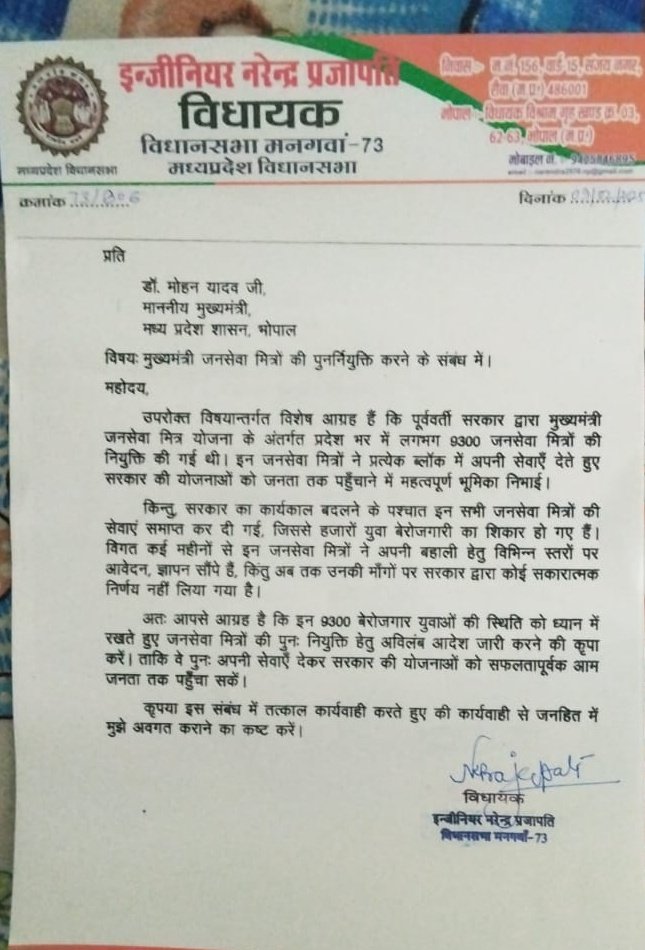 इन्जीनियर नरेन्द्र प्रजापति
विधायक
विधानसभा मनगवां-73
मध्यप्रदेश विधानसभा
मध्यप्रदेश विधानसभा
निवास :- म.नं. 156, वार्ड 15, संजय नगर,
रीवा (म.प्र.) 486001
भोपाल :- विधायक विश्राम गृह खण्ड क्र. 03,
62-63, भोपाल (म.प्र.)
मोबाइल नं. :-
email :-
क्रमांक
दिनांक
प्रति
डॉ. मोहन यादव जी,
माननीय मुख्यमंत्री,
मध्य प्रदेश शासन, भोपाल
विषयः मुख्यमंत्री जनसेवा मित्रों की पुनर्नियुक्ति करने के संबंध में।
महोदय,
उपरोक्त विषयान्तर्गत विशेष आग्रह हैं कि पूर्ववर्ती सरकार द्वारा मुख्यमंत्री
जनसेवा मित्र योजना के अंतर्गत प्रदेश भर में लगभग 9300 जनसेवा मित्रों की
नियुक्ति की गई थी। इन जनसेवा मित्रों ने प्रत्येक ब्लॉक में अपनी सेवाएँ देते हुए
सरकार की योजनाओं को जनता तक पहुँचाने में महत्वपूर्ण भूमिका निभाई।
किन्तु, सरकार का कार्यकाल बदलने के पश्चात इन सभी जनसेवा मित्रों की
सेवाएं समाप्त कर दी गई, जिससे हजारों युवा बेरोजगारी का शिकार हो गए हैं।
विगत कई महीनों से इन जनसेवा मित्रों ने अपनी बहाली हेतु विभिन्न स्तरों पर
आवेदन, ज्ञापन सौंपे हैं, किंतु अब तक उनकी माँगों पर सरकार द्वारा कोई सकारात्मक
निर्णय नहीं लिया गया है।
अतः आपसे आग्रह है कि इन 9300 बेरोजगार युवाओं की स्थिति को ध्यान में
रखते हुए जनसेवा मित्रों की पुनः नियुक्ति हेतु अविलंब आदेश जारी करने की कृपा
करें। ताकि वे पुनः अपनी सेवाएँ देकर सरकार की योजनाओं को सफलतापूर्वक आम
जनता तक पहुँचा सकें।
कृपया इस संबंध में तत्काल कार्यवाही करते हुए की कार्यवाही से जनहित में
मुझे अवगत कराने का कष्ट करें।
विधायक
इन्जीनियर नरेन्द्र प्रजापति
विधानसभा मनगवाँ-73